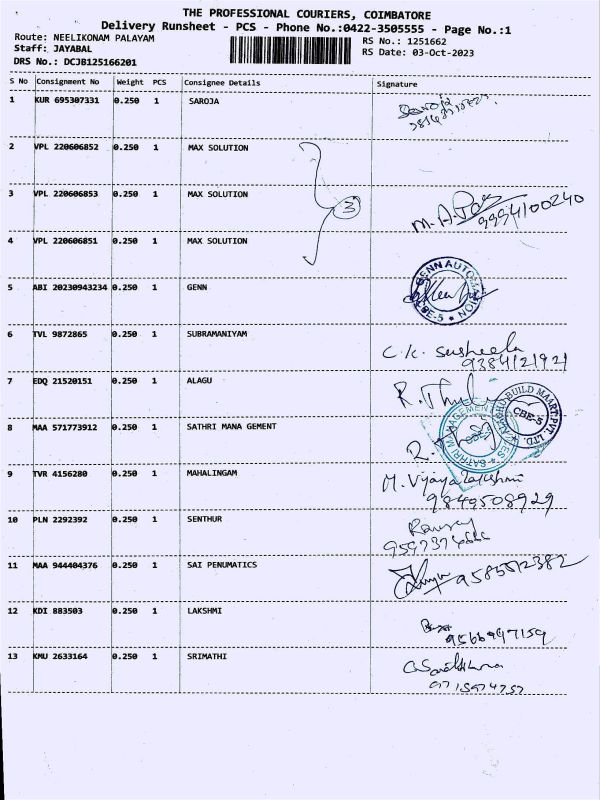 THE PROFESSIONAL COURIERS, COIMBATORE
Delivery Runsheet - PCS - Phone No.:0422-3505555 - Page No.:1
Route: NEELIKONAM PALAYAM
RS No.: 1251662
Staff: JAYABAL
RS Date: 03-Oct-2023
DRS No.: DCJB125166201
S No Consignment No Weight PCS Consignee Details Signature
1 KUR 695307331 0.250 1 SAROJA
2 VPL 220606852 0.250 1 MAX SOLUTION
3 VPL 220606853 0.250 1 MAX SOLUTION 3
9994100240
4 VPL 220606851 0.250 1 MAX SOLUTION
5 ABI 20230943234 0.250 1 GENN
GENN AUTOMATION CBE-5
6 TVL 9872865 0.250 1 SUBRAMANIYAM C.K. Susheela
9384121921
7 EDQ 21520151 0.250 1 ALAGU
BUILD MAART PVT. LTD. CBE-5
8 MAA 571773912 0.250 1 SATHRI MANA GEMENT
SATHRI MANAGEMENT
9 TVR 4156280 0.250 1 MAHALINGAM M. Vijayalakshmi
9849508929
10 PLN 2292392 0.250 1 SENTHUR
11 MAA 944404376 0.250 1 SAI PENUMATICS
12 KDI 883503 0.250 1 LAKSHMI
13 KMU 2633164 0.250 1 SRIMATHI